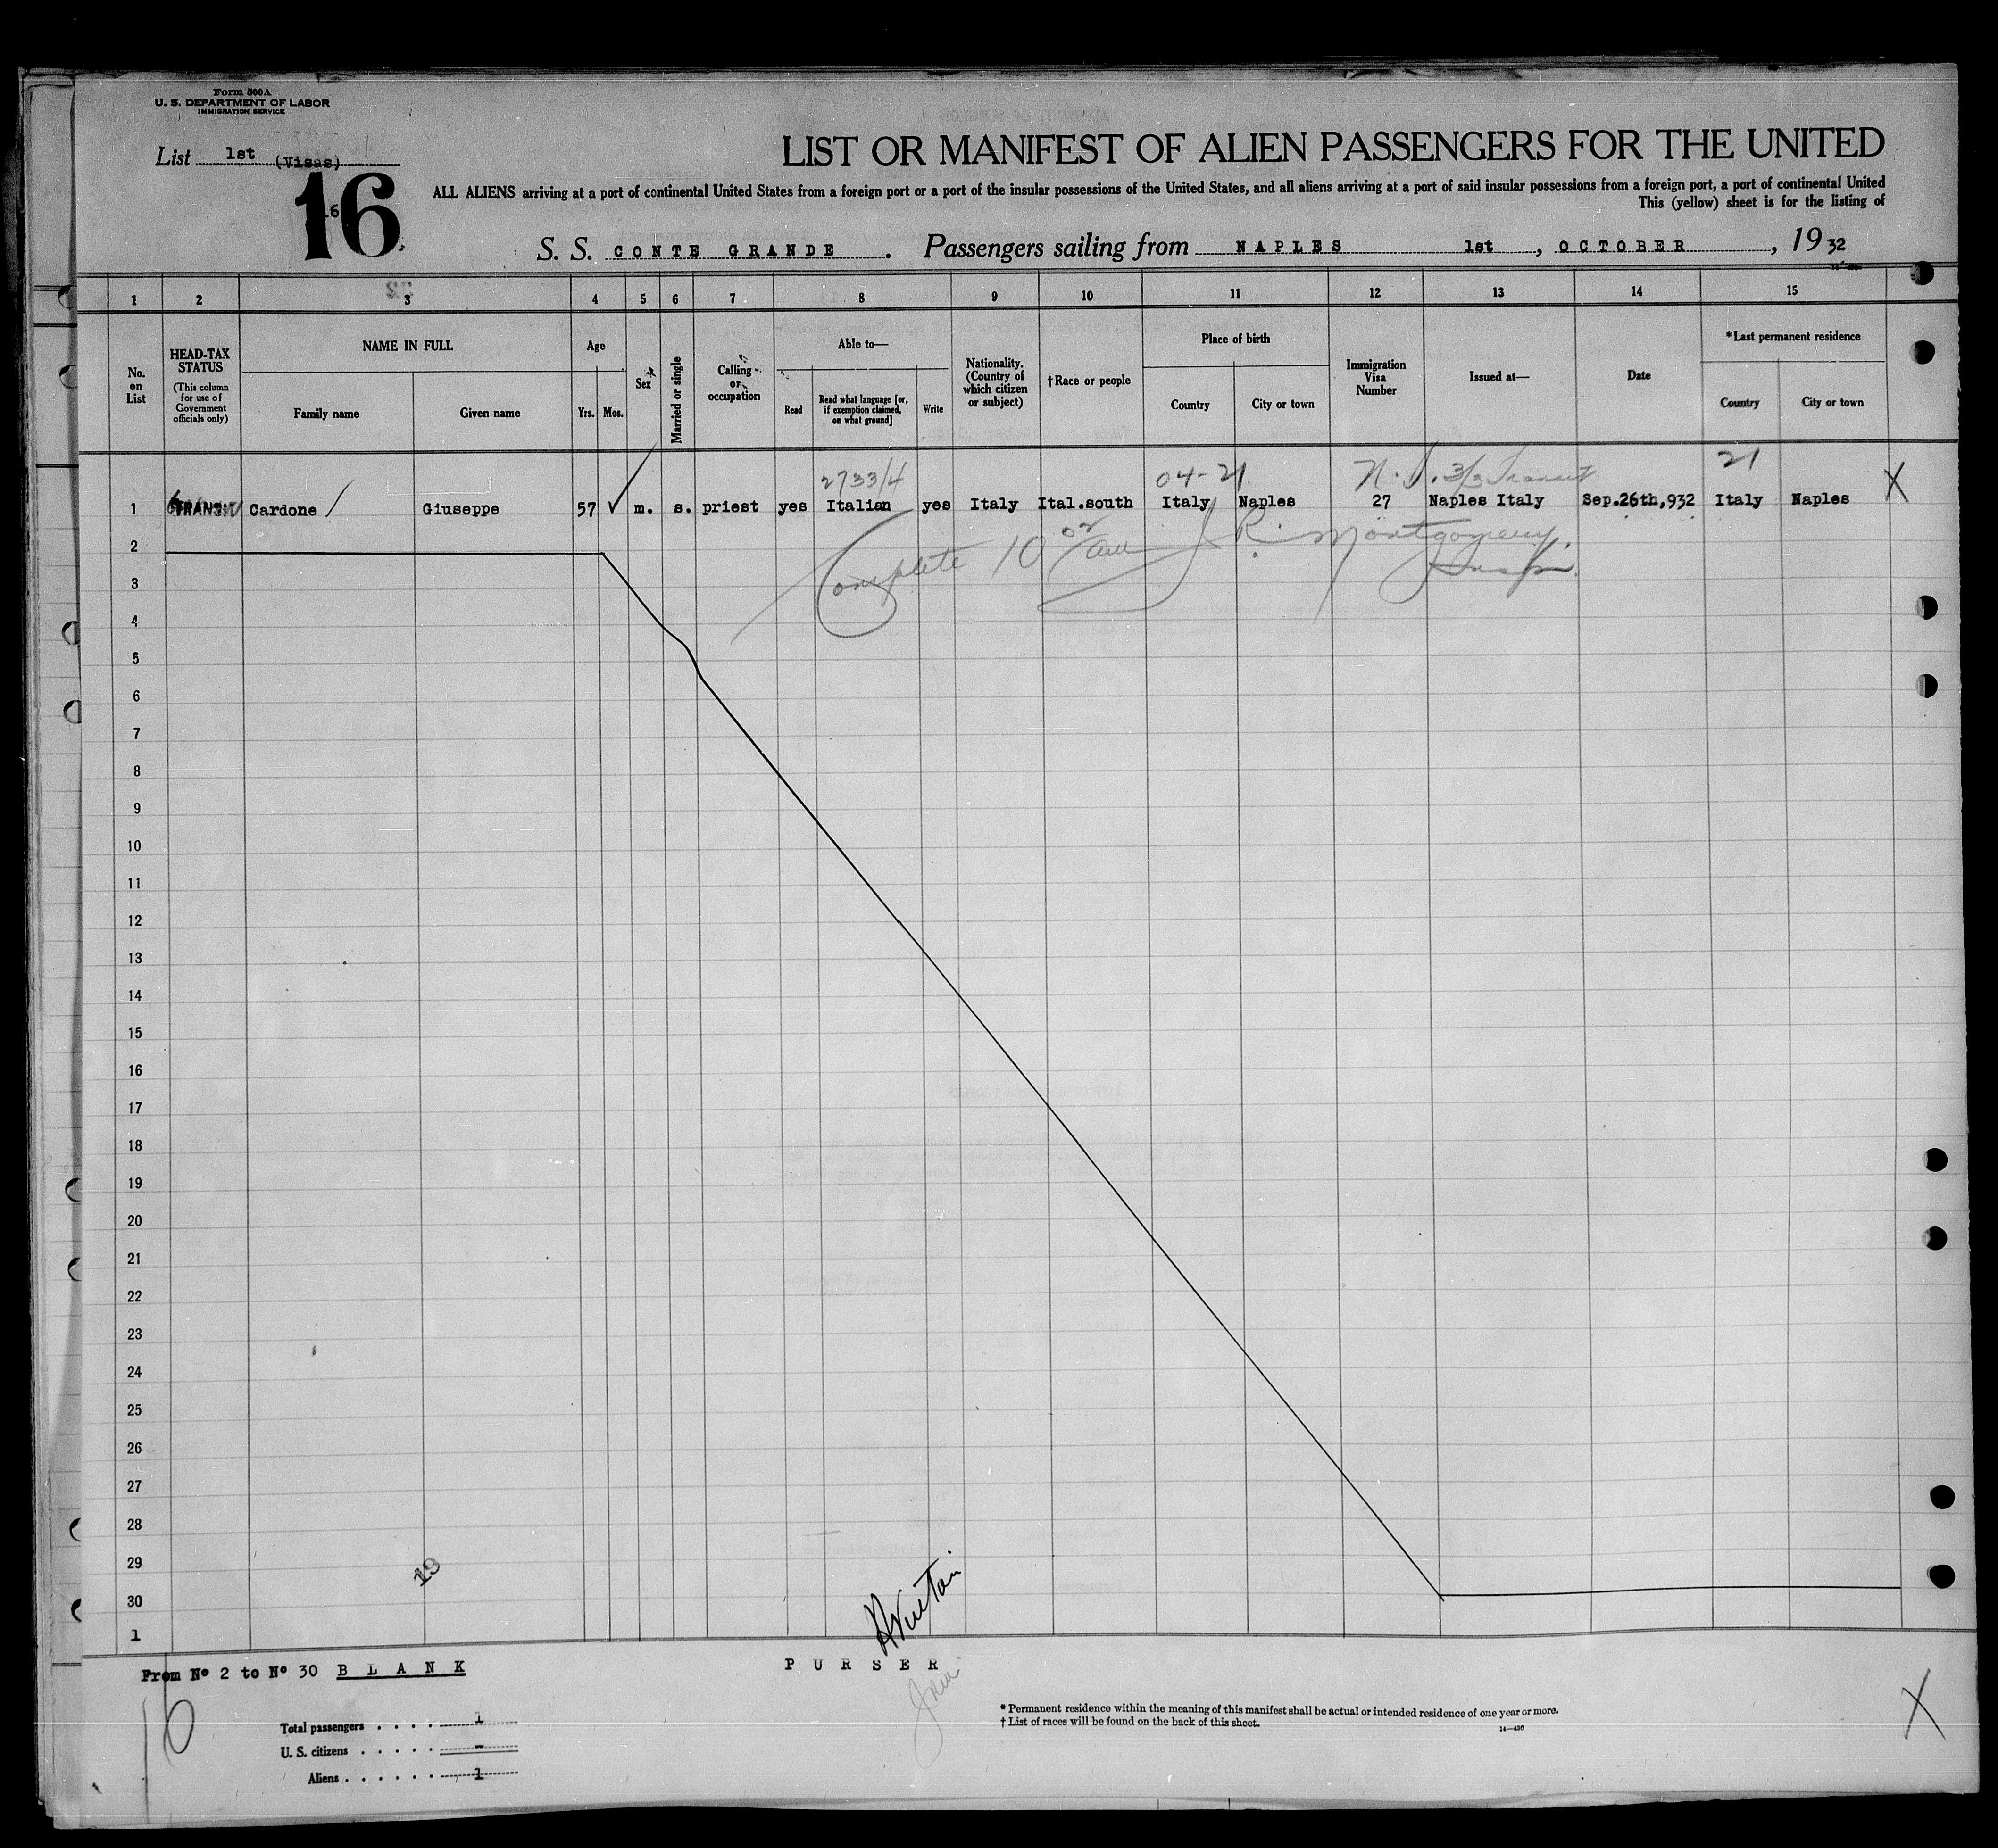 Form 500A
U. S. DEPARTMENT OF LABOR
IMMIGRATION SERVICE
List 1st (Visas)
16
LIST OR MANIFEST OF ALIEN PASSENGERS FOR THE UNITED
ALL ALIENS arriving at a port of continental United States from a foreign port or a port of the insular possessions of the United States, and all aliens arriving at a port of said insular possessions from a foreign port, a port of continental United
This (yellow) sheet is for the listing of
S. S. CONTE GRANDE. Passengers sailing from NAPLES 1st, OCTOBER, 1932
1 2 3 4 5 6 7 8 9 10 11 12 13 14 15
No. on List
HEAD-TAX STATUS (This column for use of Government officials only)
NAME IN FULL
Family name
Given name
Age
Yrs. Mos.
Sex
Married or single
Calling or occupation
Able to—
Read
Read what language [or, if exemption claimed, on what ground]
Write
Nationality. (Country of which citizen or subject)
†Race or people
Place of birth
Country
City or town
Immigration Visa Number
Issued at—
Date
*Last permanent residence
Country
City or town
2733/4 04-21 N. 3/3 Transit 21
1 TRANSIT Cardone Giuseppe 57 m. s. priest yes Italian yes Italy Ital.south Italy Naples 27 Naples Italy Sep.26th,932 Italy Naples X
Complete 10 J R. Montgomery.
Insp.
2
3
4
5
6
7
8
9
10
11
12
13
14
15
16
17
18
19
20
21
22
23
24
25
26
27
28
29
19
30
1
From Nº 2 to Nº 30 B L A N K
P U R S E R
16
Total passengers . . . . 1
U. S. citizens . . . . . -
Aliens . . . . . . 1
* Permanent residence within the meaning of this manifest shall be actual or intended residence of one year or more.
† List of races will be found on the back of this sheet.
14—430
X